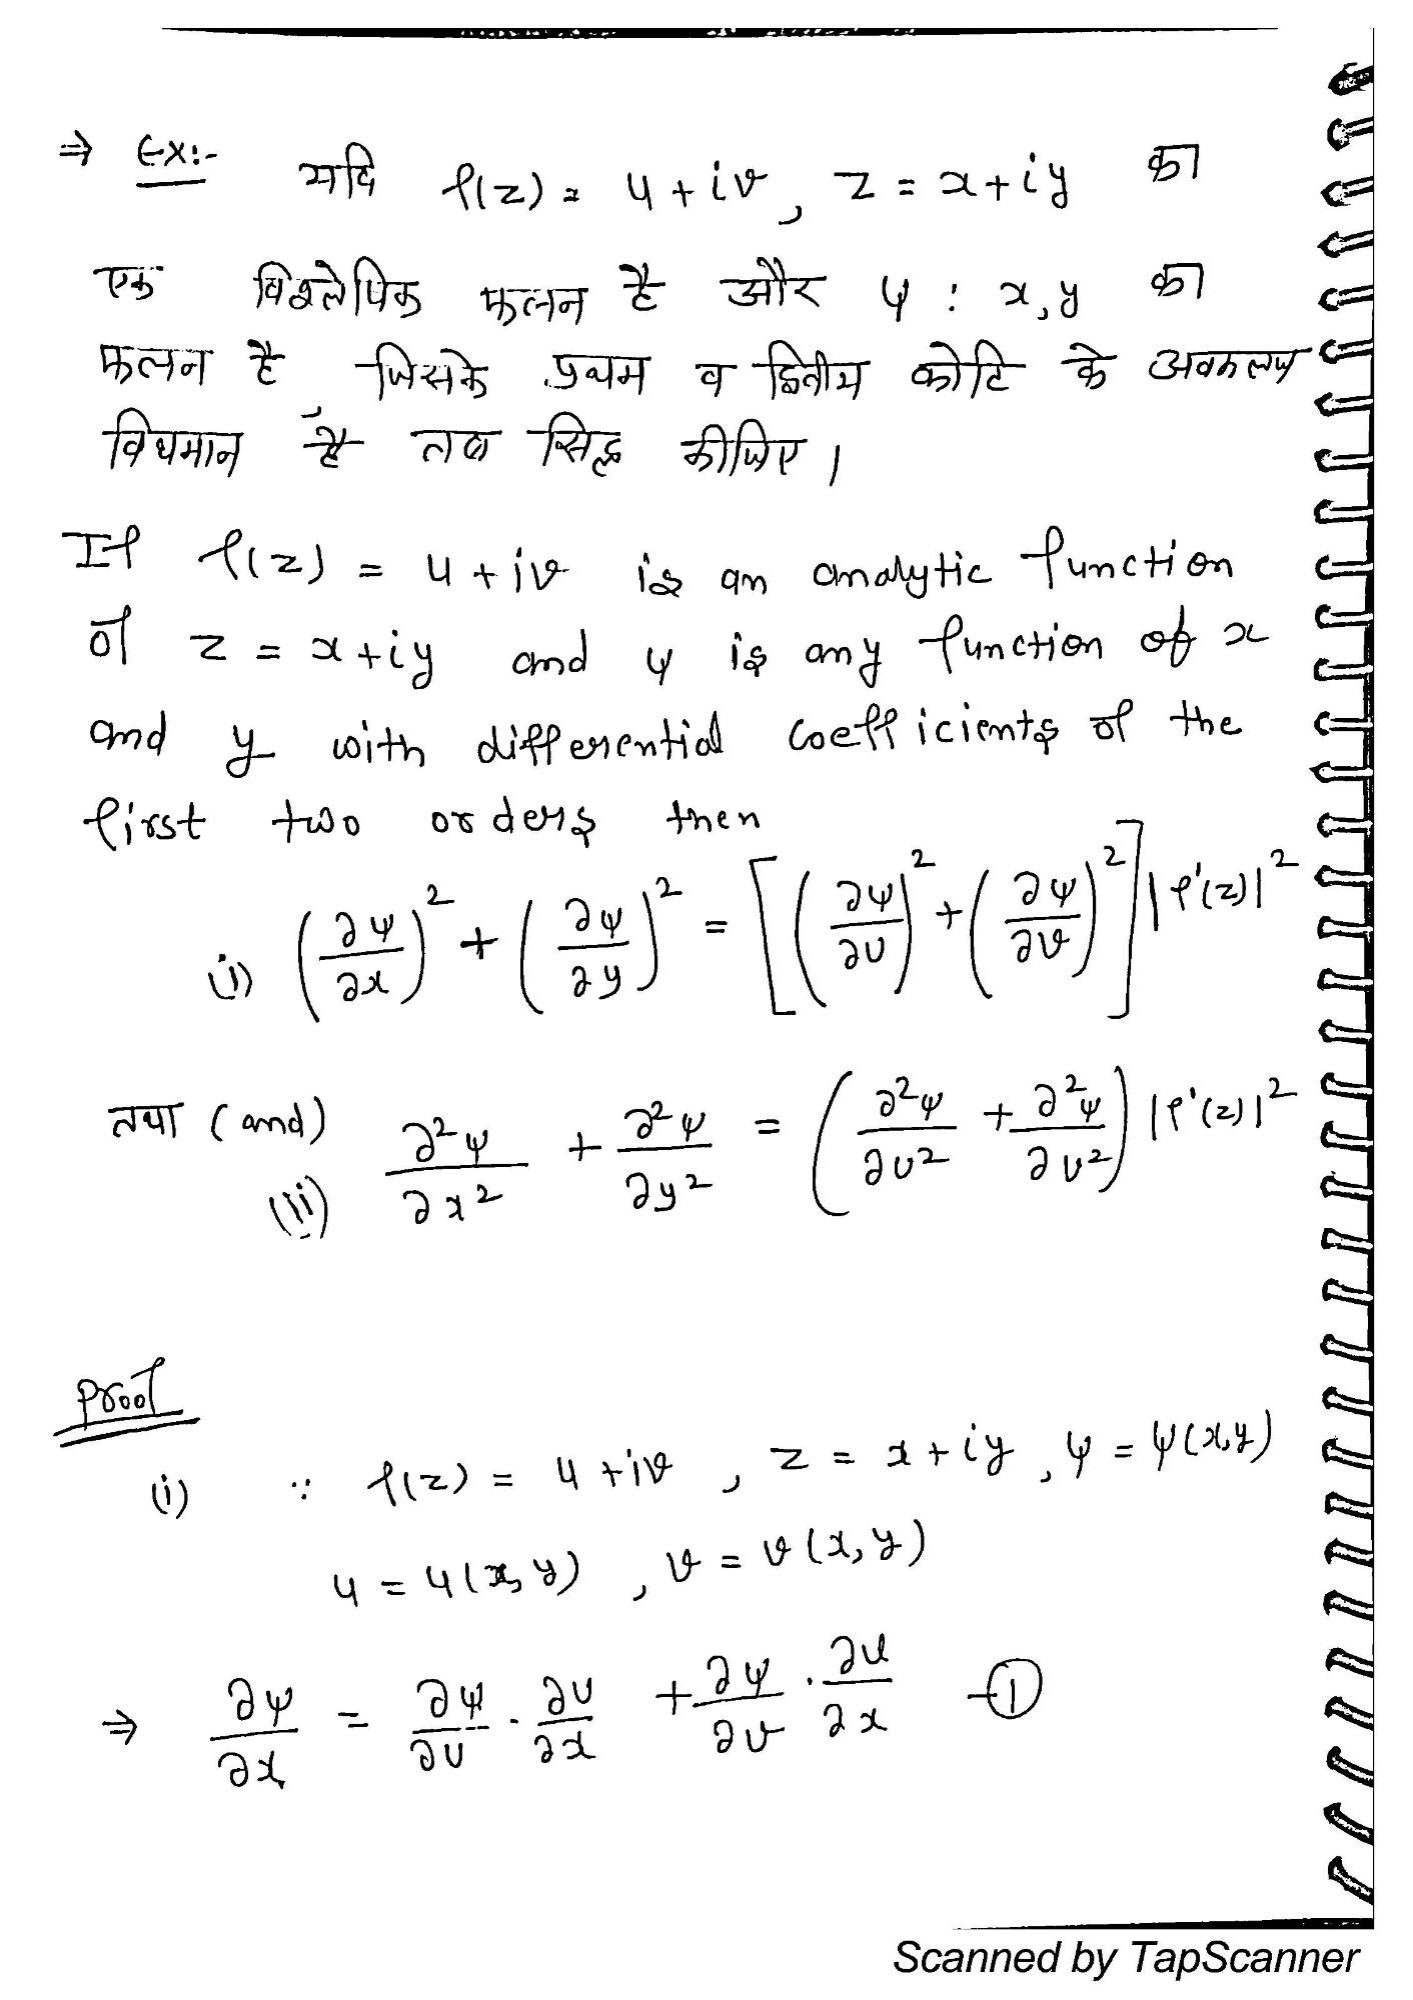 ⇒ Ex:- यदि f(z) = u + iv, z = x + iy का
एक विश्लेषिक फलन है और ψ : x, y का
फलन है जिसके प्रथम व द्वितीय कोटि के अवकलज
विधमान है तब सिद्ध कीजिए।
If f(z) = u + iv is an analytic function
of z = x + iy and ψ is any function of x
and y with differential coefficients of the
first two orders then
(i) (∂ψ/∂x)² + (∂ψ/∂y)² = [(∂ψ/∂u)² + (∂ψ/∂v)²] |f'(z)|²
तथा (and)
(ii) ∂²ψ/∂x² + ∂²ψ/∂y² = (∂²ψ/∂u² + ∂²ψ/∂v²) |f'(z)|²
Proof
(i) ∵ f(z) = u + iv, z = x + iy, ψ = ψ(x,y)
u = u(x, y), v = v(x, y)
⇒ ∂ψ/∂x = ∂ψ/∂u · ∂u/∂x + ∂ψ/∂v · ∂v/∂x -①
Scanned by TapScanner